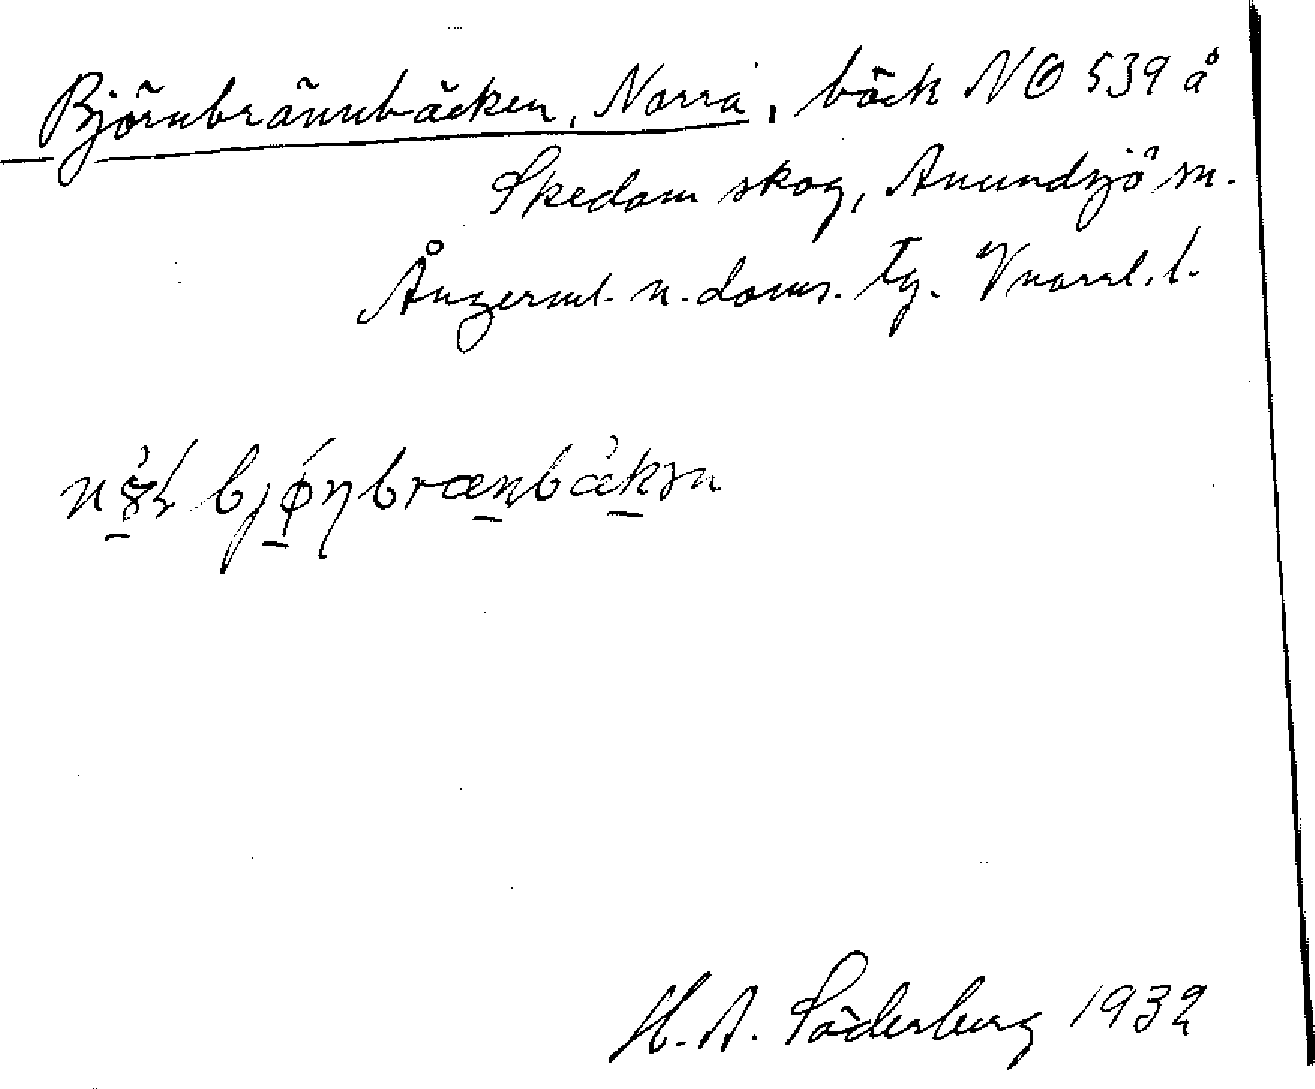 Björnbrännbäcken, Norra, bäck NO 539 å
Skedom skog, Anundsjö sn.
Ångerml. n. doms. tg. Vnorrl. l.
bjǿɳbrænbækən
H. A. Söderberg 1932